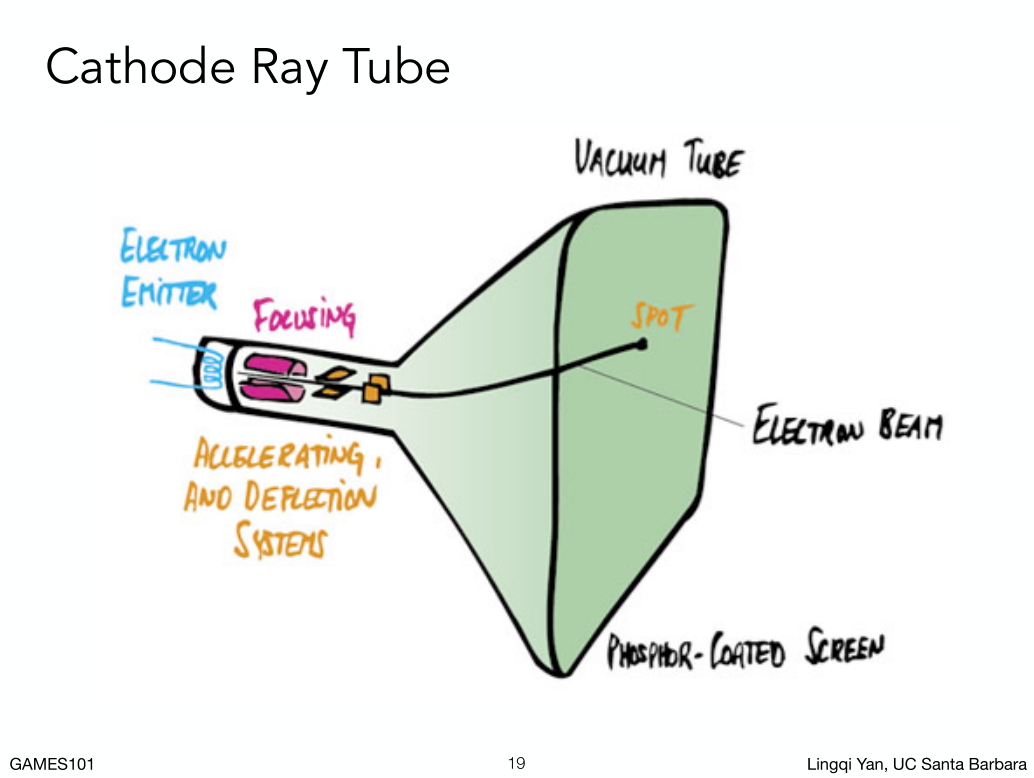 Cathode Ray Tube
VACUUM TUBE
ELECTRON
EMITTER
FOCUSING
SPOT
ELECTRON BEAM
ACCELERATING,
AND DEFLECTION
SYSTEMS
PHOSPHOR-COATED SCREEN
GAMES101
19
Lingqi Yan, UC Santa Barbara